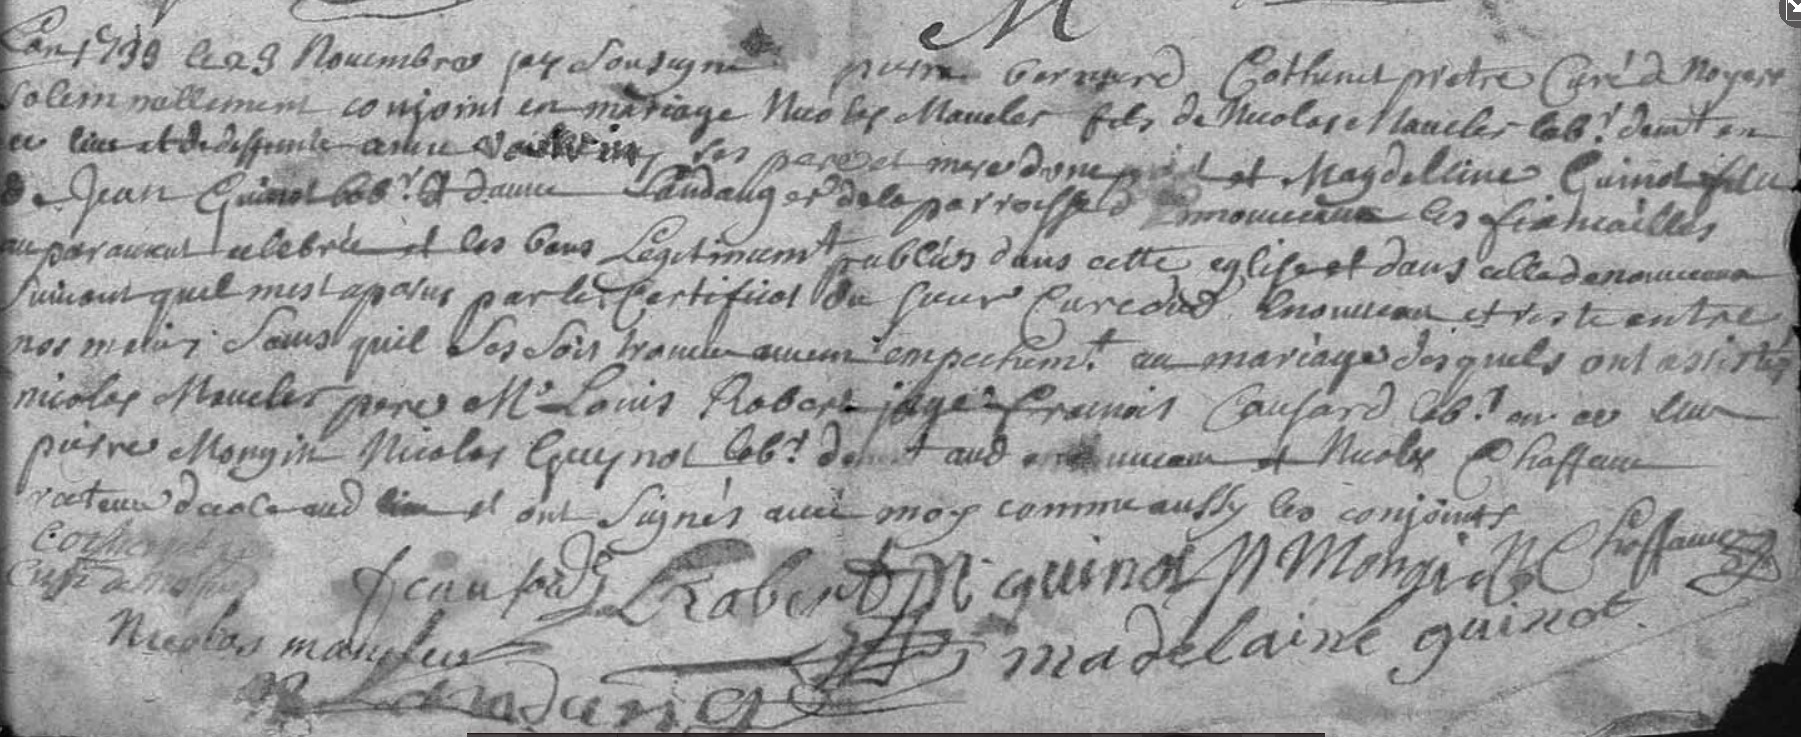 M
L'an 1739 le 23 Novembre jay Soussigné pierre bernard Cothenet prêtre Curé de Noyers
solemnellement conjoint en mariage Nicolas Maucler fils de Nicolas Maucler lab.r demt en
ce lieu et de deffunte anne ses pere et mere dune part et Magdelleine Guinot fille
de Jean Guinot lab.r et danne Landang er de la parroisse d les fiancailles
auparavant celebrée et les bans Legitimemt publiés dans cette eglise et dans celle denonueau
suivant quil mest aparus par le Certificat du sieur Curé dud. Enonueau et reste entre
nos mains sans quil se soit trouvé aucun empechemt. au mariage desquels ont assistés
nicolas Maucler pere Mr Louis Robert juge francois Caussard lab.r en ce lieu
pierre Mongin Nicolas Guynot lab.r demt aud et Nicolas Choffaut
recteur decole aud lieu et ont signés avec moy comme aussy les conjoints
Cothenet
Curé de
f causard LRobert N guinot p Mongin N Choffaut
Nicolas maucler madelaine guinot
N Landang